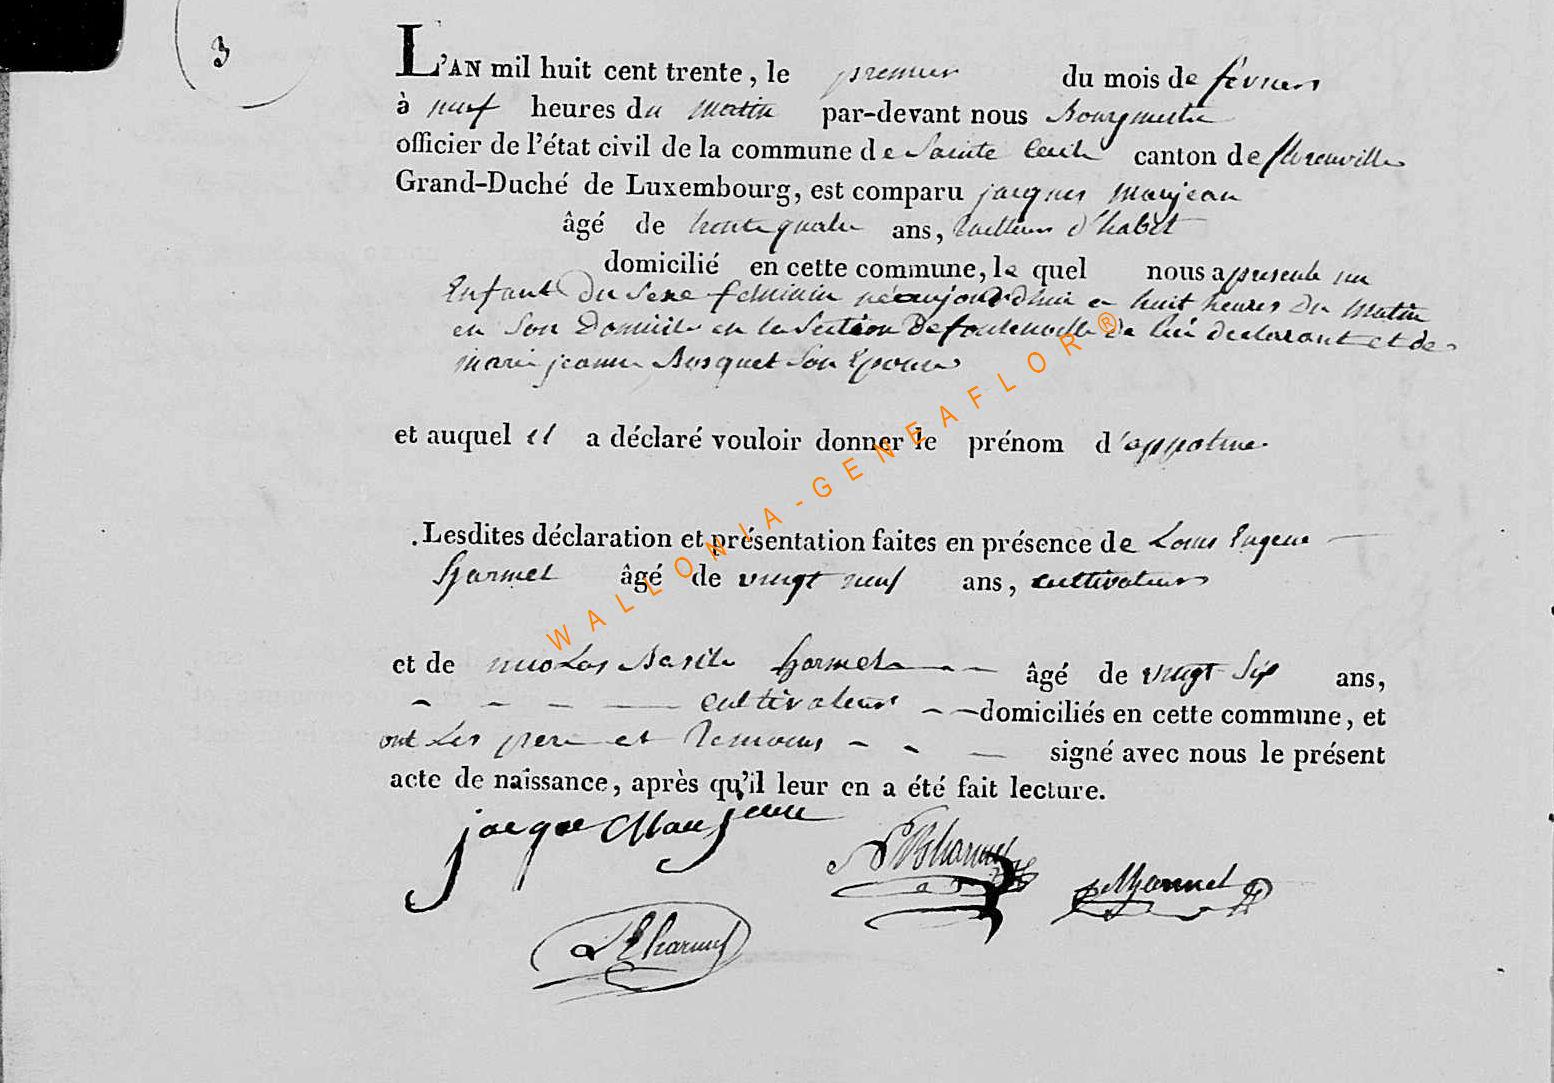 3
L'AN mil huit cent trente, le premier du mois de fevrier
à neuf heures du matin par-devant nous Bourgmestre
officier de l'état civil de la commune de Sainte Cecile canton de florenville
Grand-Duché de Luxembourg, est comparu jacques Manjean
âgé de trente quatre ans, tailleur d'habit
domicilié en cette commune, le quel nous a presenté un
Enfant du sexe feminin né aujourd'hui a huit heures du Matin
en son Domicile en la Section De fontenoille de lui declarant et de
marie jeanne Bosquet son Epouse
et auquel il a déclaré vouloir donner le prénom d'appoline
Lesdites déclaration et présentation faites en présence de Louis Eugene
harmel âgé de vingt neuf ans, cultivateur
et de nicolas Basile harmel âgé de vingt six ans,
cultivateur domiciliés en cette commune, et
ont Les pere et temoins signé avec nous le présent
acte de naissance, après qu'il leur en a été fait lecture.
jacque Manjean NBharmel harmel
LEharmel
WALLONIA-GENEAFLOR®